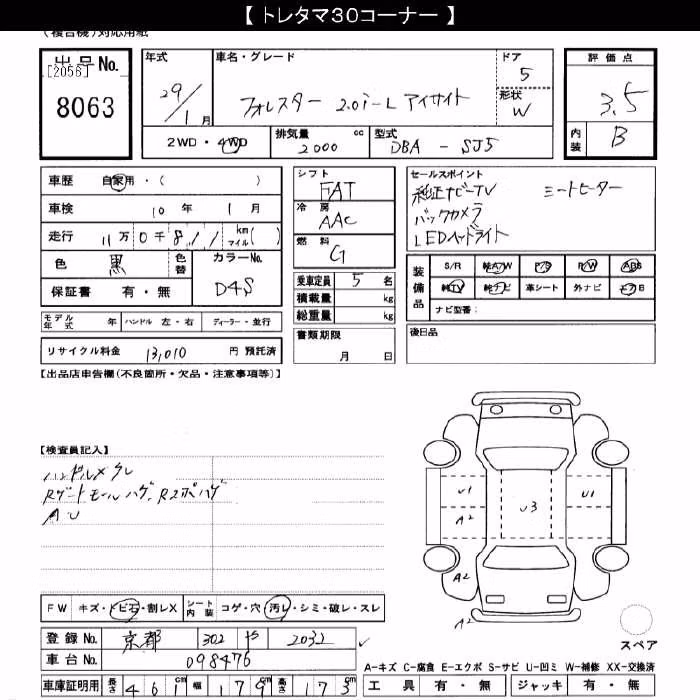 【 トレタマ30コーナー 】
(複合機)対応用紙
出品No.
[2056]
8063
年式
29/1月
車名・グレード
フォレスター 2.0i-L アイサイト
ドア
5
形状
W
評価点
3.5
内装
B
2WD・4WD
排気量 cc
2000
型式
DBA - SJ5
車歴 自家用・( )
車検 10年 1月
走行 11万0千8 km マイル( )
色 黒 色替
カラーNo.
D4S
保証書 有・無
シフト
FAT
冷房
AAC
燃料
G
乗車定員 5名
積載量 kg
総重量 kg
セールスポイント
純正ナビ-TV シートヒーター
バックカメラ
LEDヘッドライト
装備品
S/R 純A/W P/S P/W ABS
純TV 純ナビ 革シート 外ナビ エアB
ナビ型番:
モデル年式 年 ハンドル 左・右 ディーラー・並行
リサイクル料金 13,010 円 預託済
書類期限
月 日
後日品
【出品店申告欄(不良箇所・欠品・注意事項等)】
【検査員記入】
ハンドルスレ
Rゲートモールハゲ、R2ポハゲ
AU
U1
A2
U3
U1
A2
A2
スペア
FW キズ・トビ石・割レX
シート内装 コゲ・穴・汚レ・シミ・破レ・スレ
登録No. 京都 302 す 2032
車台No. 098476
車庫証明用 長さ 461cm 幅 179cm 高さ 173cm
A-キズ C-腐食 E-エクボ S-サビ U-凹ミ W-補修 XX-交換済
工具 有・無 ジャッキ 有・無